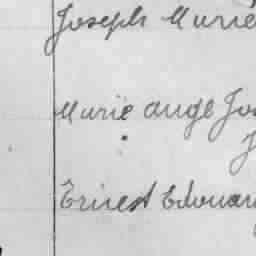 Joseph Marie
Marie Ange Jos
J
Ernest Edouar